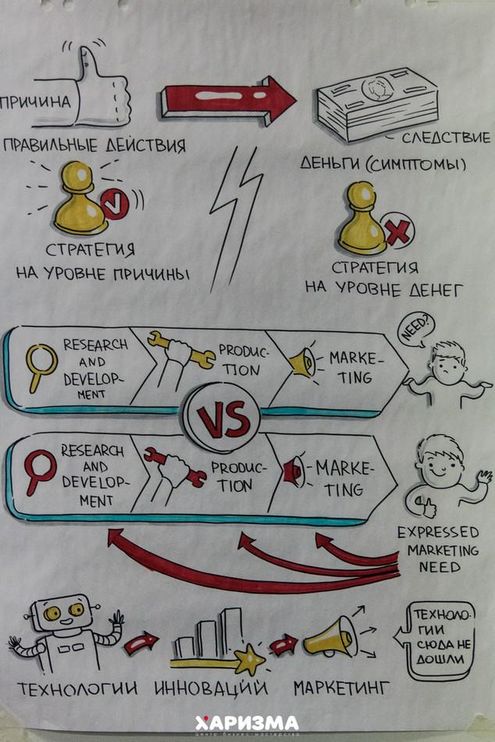 ПРИЧИНА
ПРАВИЛЬНЫЕ ДЕЙСТВИЯ
СЛЕДСТВИЕ
ДЕНЬГИ (СИМПТОМЫ)
СТРАТЕГИЯ
НА УРОВНЕ ПРИЧИНЫ
СТРАТЕГИЯ
НА УРОВНЕ ДЕНЕГ
RESEARCH
AND
DEVELOP-
MENT
PRODUC-
TION
MARKE-
TING
NEED?
VS
RESEARCH
AND
DEVELOP-
MENT
PRODUC-
TION
MARKE-
TING
EXPRESSED
MARKETING
NEED
ТЕХНОЛОГИИ
ИННОВАЦИЙ
МАРКЕТИНГ
ТЕХНОЛО-
ГИИ
СЮДА НЕ
ДОШЛИ
ХАРИЗМА
центр бизнес мастерства